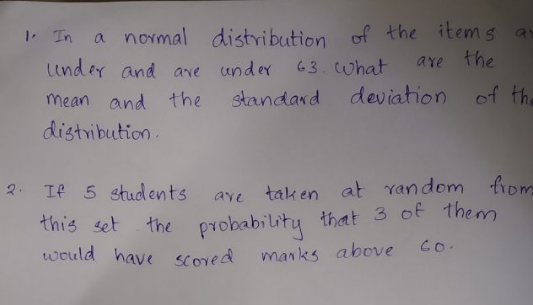 1. In a normal distribution of the items
under and are under 63. What are the
mean and the standard deviation of
distribution.
2. If 5 students are taken at random from
this set the probability that 3 of them
would have scored marks above 60.